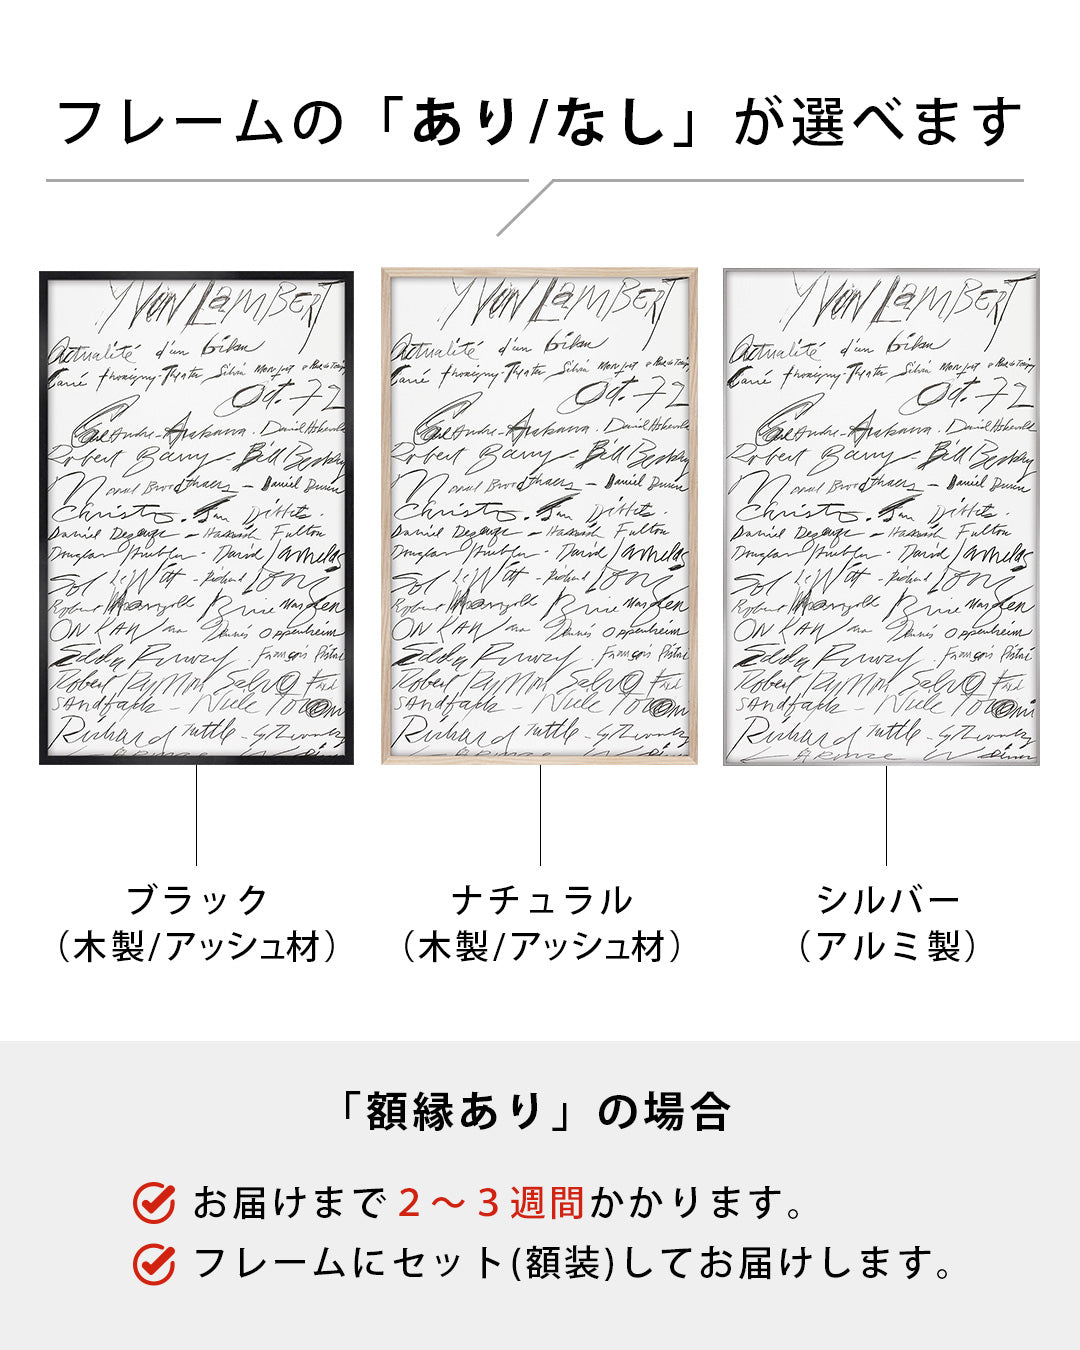 フレームの「あり/なし」が選べます
YVON LAMBERT
Actualité d'un bilan
Oct. 72
Carl Andre - Arakawa . David
Robert Barry - Bill
Marcel Broodthaers - Daniel Buren
Christo . Jan Dibbets .
Daniel Dezeuze - Hamish Fulton
Douglas Huebler - David Lamelas
Sol LeWitt - Richard Long
Robert Mangold Brice Marden
ON KAWARA Dennis Oppenheim
Edda Renouf . François
Robert RYMAN Salvo Fred
SANDBACK - Niele Toroni
Richard Tuttle -
YVON LAMBERT
Actualité d'un bilan
Oct. 72
Carl Andre - Arakawa . David
Robert Barry - Bill
Marcel Broodthaers - Daniel Buren
Christo . Jan Dibbets .
Daniel Dezeuze - Hamish Fulton
Douglas Huebler - David Lamelas
Sol LeWitt - Richard Long
Robert Mangold Brice Marden
ON KAWARA Dennis Oppenheim
Edda Renouf . François
Robert RYMAN Salvo Fred
SANDBACK - Niele Toroni
Richard Tuttle -
YVON LAMBERT
Actualité d'un bilan
Oct. 72
Carl Andre - Arakawa . David
Robert Barry - Bill
Marcel Broodthaers - Daniel Buren
Christo . Jan Dibbets .
Daniel Dezeuze - Hamish Fulton
Douglas Huebler - David Lamelas
Sol LeWitt - Richard Long
Robert Mangold Brice Marden
ON KAWARA Dennis Oppenheim
Edda Renouf . François
Robert RYMAN Salvo Fred
SANDBACK - Niele Toroni
Richard Tuttle -
ブラック
（木製/アッシュ材）
ナチュラル
（木製/アッシュ材）
シルバー
（アルミ製）
「額縁あり」の場合
お届けまで２〜３週間かかります。
フレームにセット(額装)してお届けします。